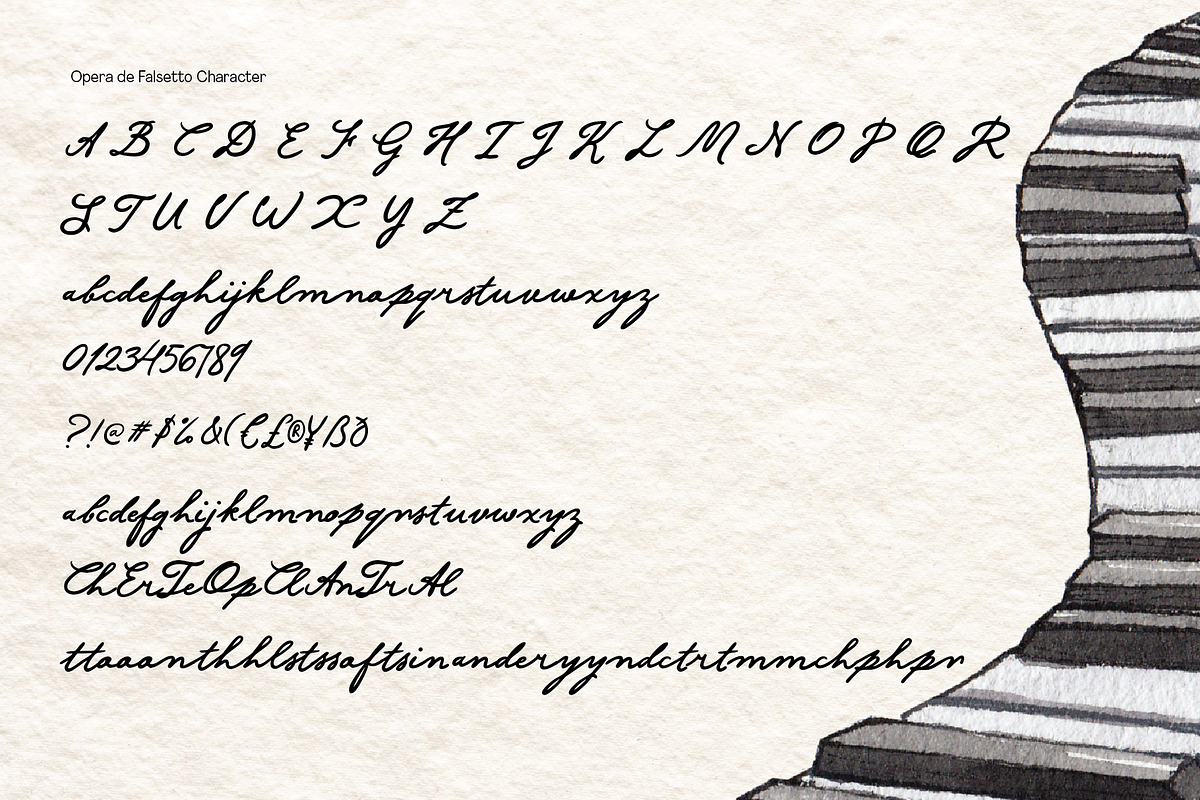 Opera de Falsetto Character
A B C D E F G H I J K L M N O P Q R
S T U V W X Y Z
abcdefghijklmnopqrstuvwxyz
0123456789
?!@#$%&(€£®¥ßð
abcdefghijklmnopqrstuvwxyz
ChErTeOpClAnTrAl
ttaaanthhlstssaftsinanderyyndctrtmmchphpr